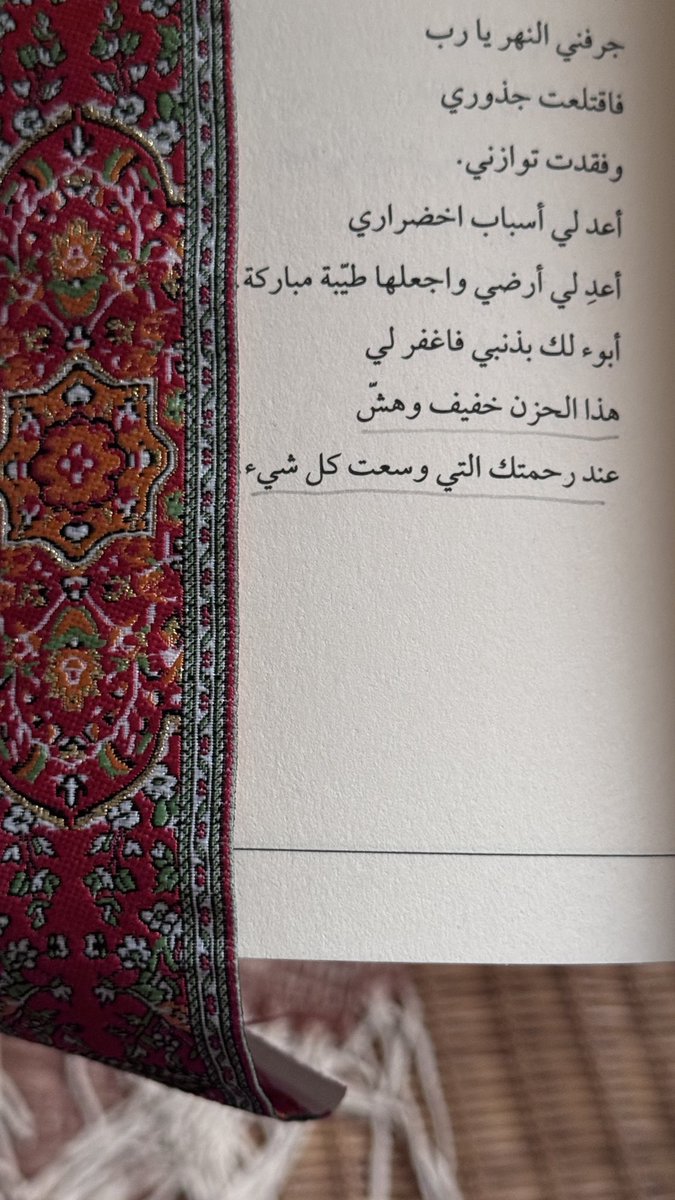 جرفني النهر يا رب
فاقتلعت جذوري
وفقدت توازني.
أعد لي أسباب اخضراري
أعدِ لي أرضي واجعلها طيّبة مباركة.
أبوء لك بذنبي فاغفر لي
هذا الحزن خفيف وهشّ
عند رحمتك التي وسعت كل شيء.